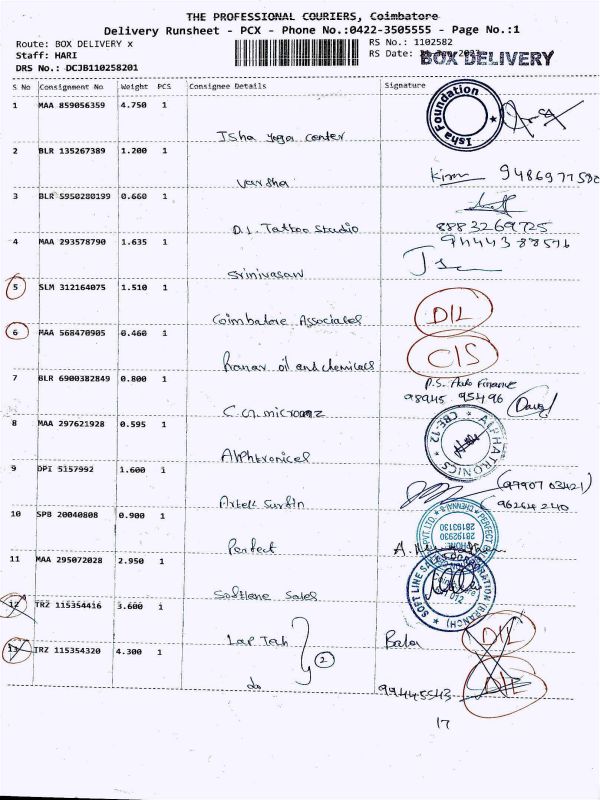 THE PROFESSIONAL COURIERS, Coimbatore
Delivery Runsheet - PCX - Phone No.:0422-3505555 - Page No.:1
Route: BOX DELIVERY x
RS No.: 1102582
Staff: HARI
RS Date:
BOX DELIVERY
DRS No.: DCJB110258201
S No Consignment No Weight PCS Consignee Details Signature
1 MAA 859056359 4.750 1
Isha Foundation
Isha yoga center
2 BLR 135267389 1.200 1
Varsha
3 BLR 5950280199 0.660 1
D.J. Tattoo Studio
8883269725
4 MAA 293578790 1.635 1
Srinivasan
5 SLM 312164075 1.510 1
Coimbatore Associates D/L
6 MAA 568470905 0.460 1
Pranav oil and chemicals C/S
7 BLR 6900382849 0.800 1
P.S. Auto Finance
98945 95496
8 MAA 297621928 0.595 1
ALPHATRONICS CBE-12
Alphtronices
9 DPI 5157992 1.600 1
(99907 03421)
10 SPB 20040808 0.900 1
PERFECT PVT.LTD. CHENNAI PHONE 28192930 28193130
Perfect
11 MAA 295072028 2.950 1
SOFT LINE SALES CORPORATION (BRANCH)
Softlene Sales
12 TRZ 115354416 3.600 1
Lap Tah Bala D/L
2
13 TRZ 115354320 4.300 1
do D/L
17